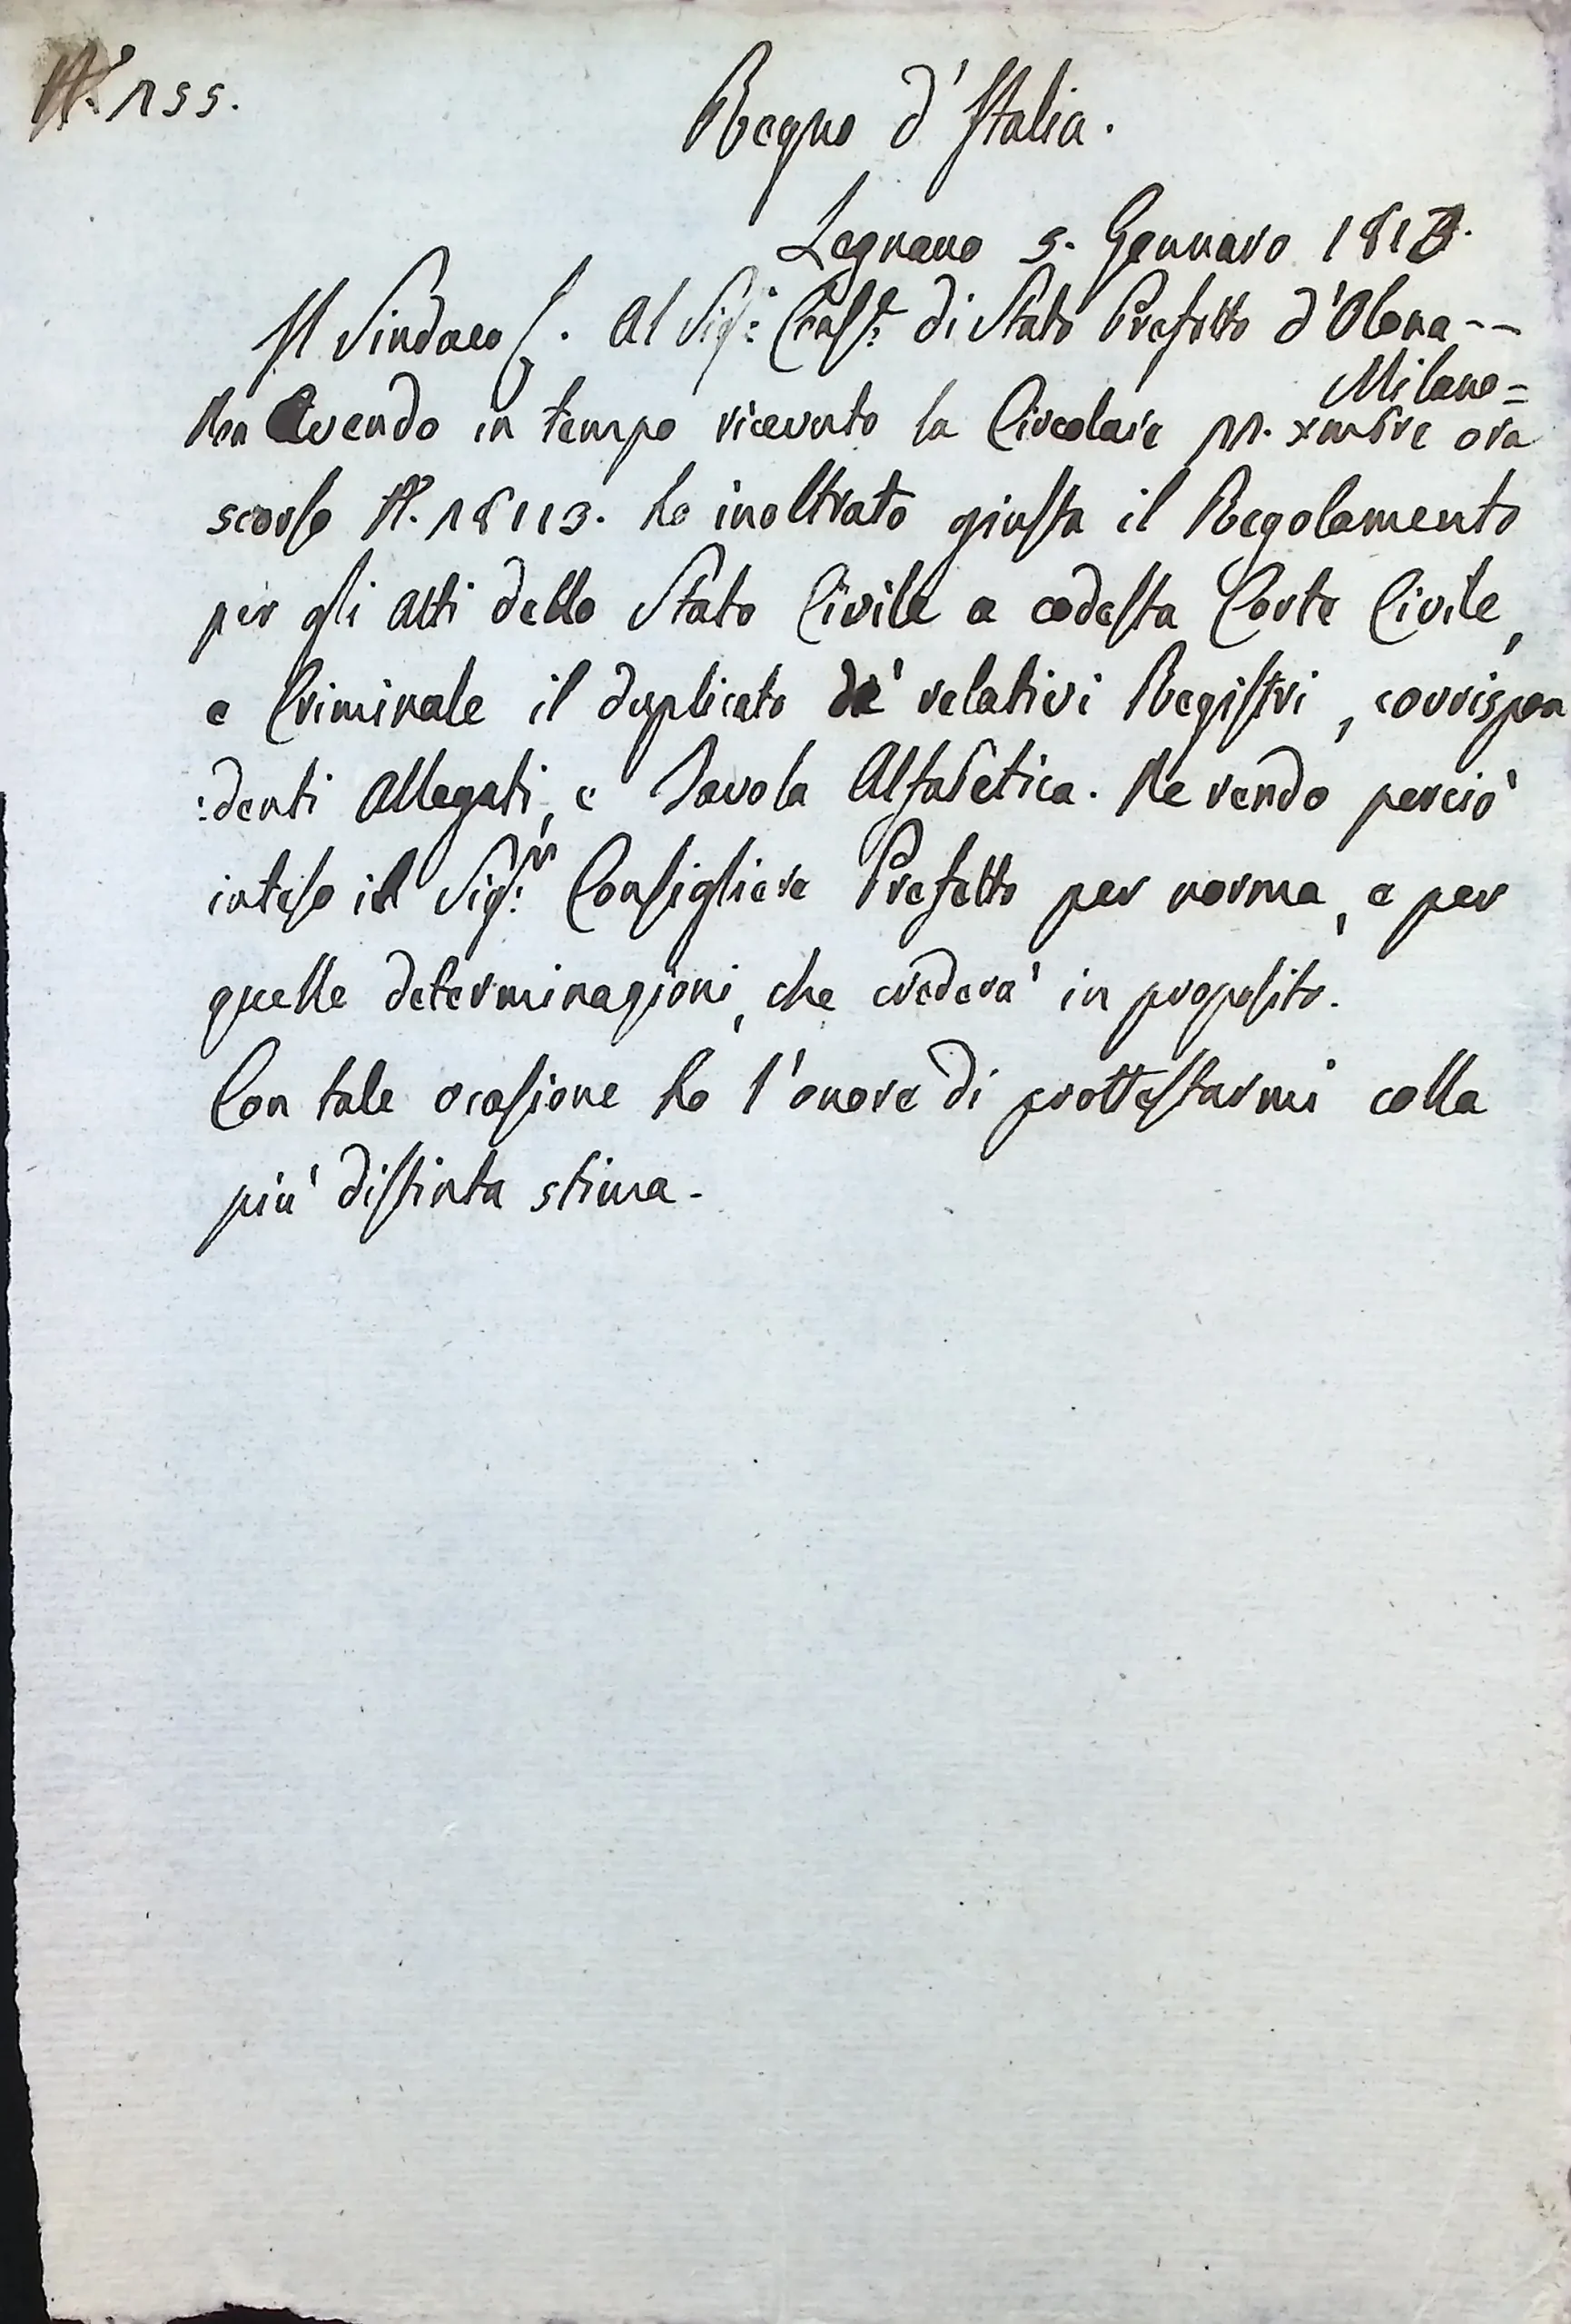 N.° 155.
Regno d'Italia.
Legnano 5. Gennaro 1813.
Il Sindaco. Al Sig.r Cons.e di Stato Prefetto d'Olona--
Milano=
Non Avendo in tempo ricevuto la Circolare 11. xmbre ora
scorso N. 18113. ho inoltrato giusta il Regolamento
per gli Atti dello Stato Civile a codesta Corte Civile,
e Criminale il duplicato de' relativi Registri, corrispon
:denti Allegati, e Tavola Alfabetica. Ne rendo perciò
inteso il Sig.r Consigliere Prefetto per norma, e per
quelle determinazioni, che crederà in proposito.
Con tale ocasione ho l'onore di prottestarmi colla
più distinta stima.